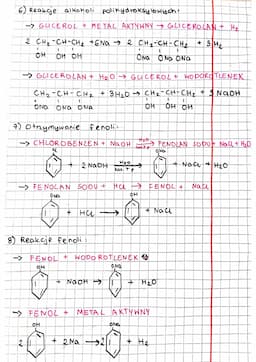 6) Reakcje alkoholi polihydroksylowych:
→ GLICEROL + METAL AKTYWNY → GLICEROLAN + H₂
2 CH₂-CH-CH₂ + 6Na → 2 CH₂-CH-CH₂ + 3H₂
OH OH OH ONa ONa ONa
→ GLICEROLAN + H₂O → GLICEROL + WODOROTLENEK
CH₂-CH-CH₂ + 3H₂O → CH₂-CH-CH₂ + 3NaOH
ONa ONa ONa OH OH OH
7) Otrzymywanie fenoli:
→ CHLOROBENZEN + NaOH → FENOLAN SODU + NaCl + H₂O
ONa
+ 2 NaOH → + NaCl + H₂O
→ FENOLAN SODU + HCl → FENOL + NaCl
ONa OH
+ HCl → + NaCl
8) Reakcje fenoli:
→ FENOL + WODOROTLENEK
OH ONa
+ NaOH → + H₂O
→ FENOL + METAL AKTYWNY
OH ONa
2 + 2Na → 2 + H₂